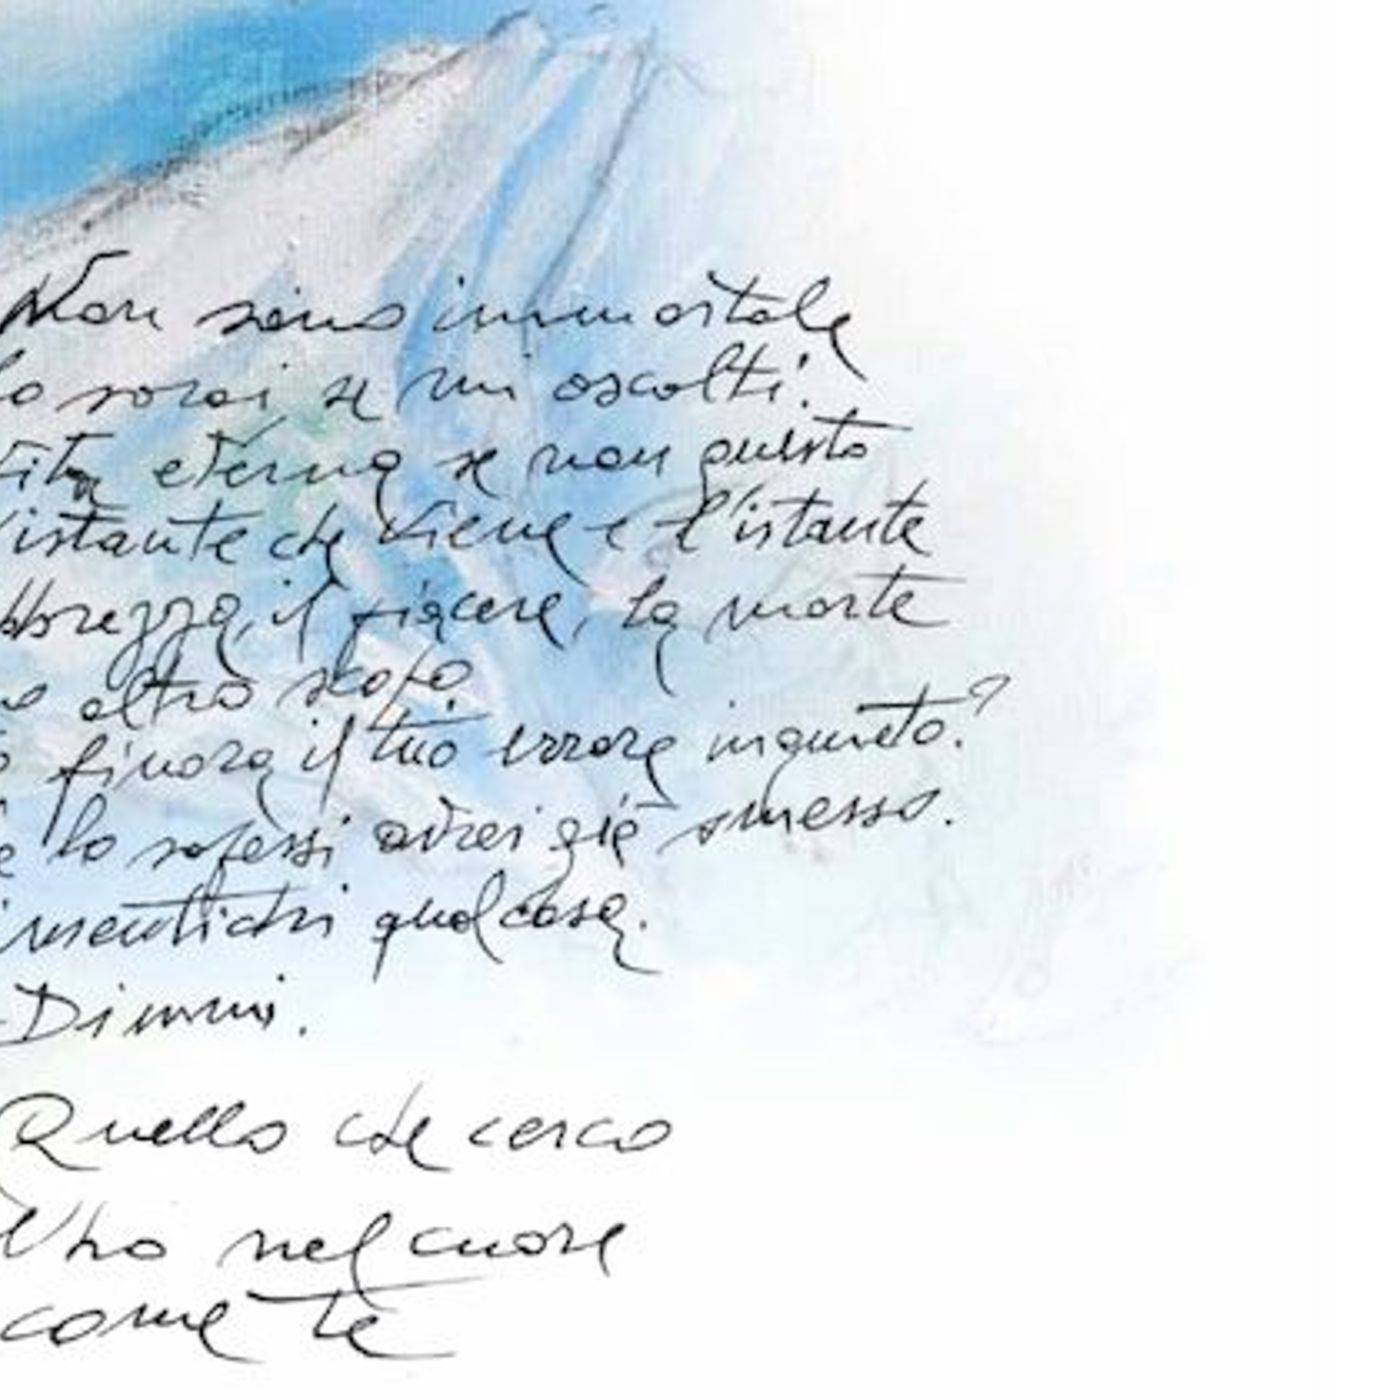 Non sono immortale
lo sarai, se mi ascolti.
vita eterna se non questo
l'istante che viene e l'istante
bbrezza, il piacere, la morte
no altro scopo.
o finora il tuo errare inquieto?
e lo sapessi avrei già smesso.
imentichi qualcosa.
Dimmi.
Quello che cerco
l'ho nel cuore
come te